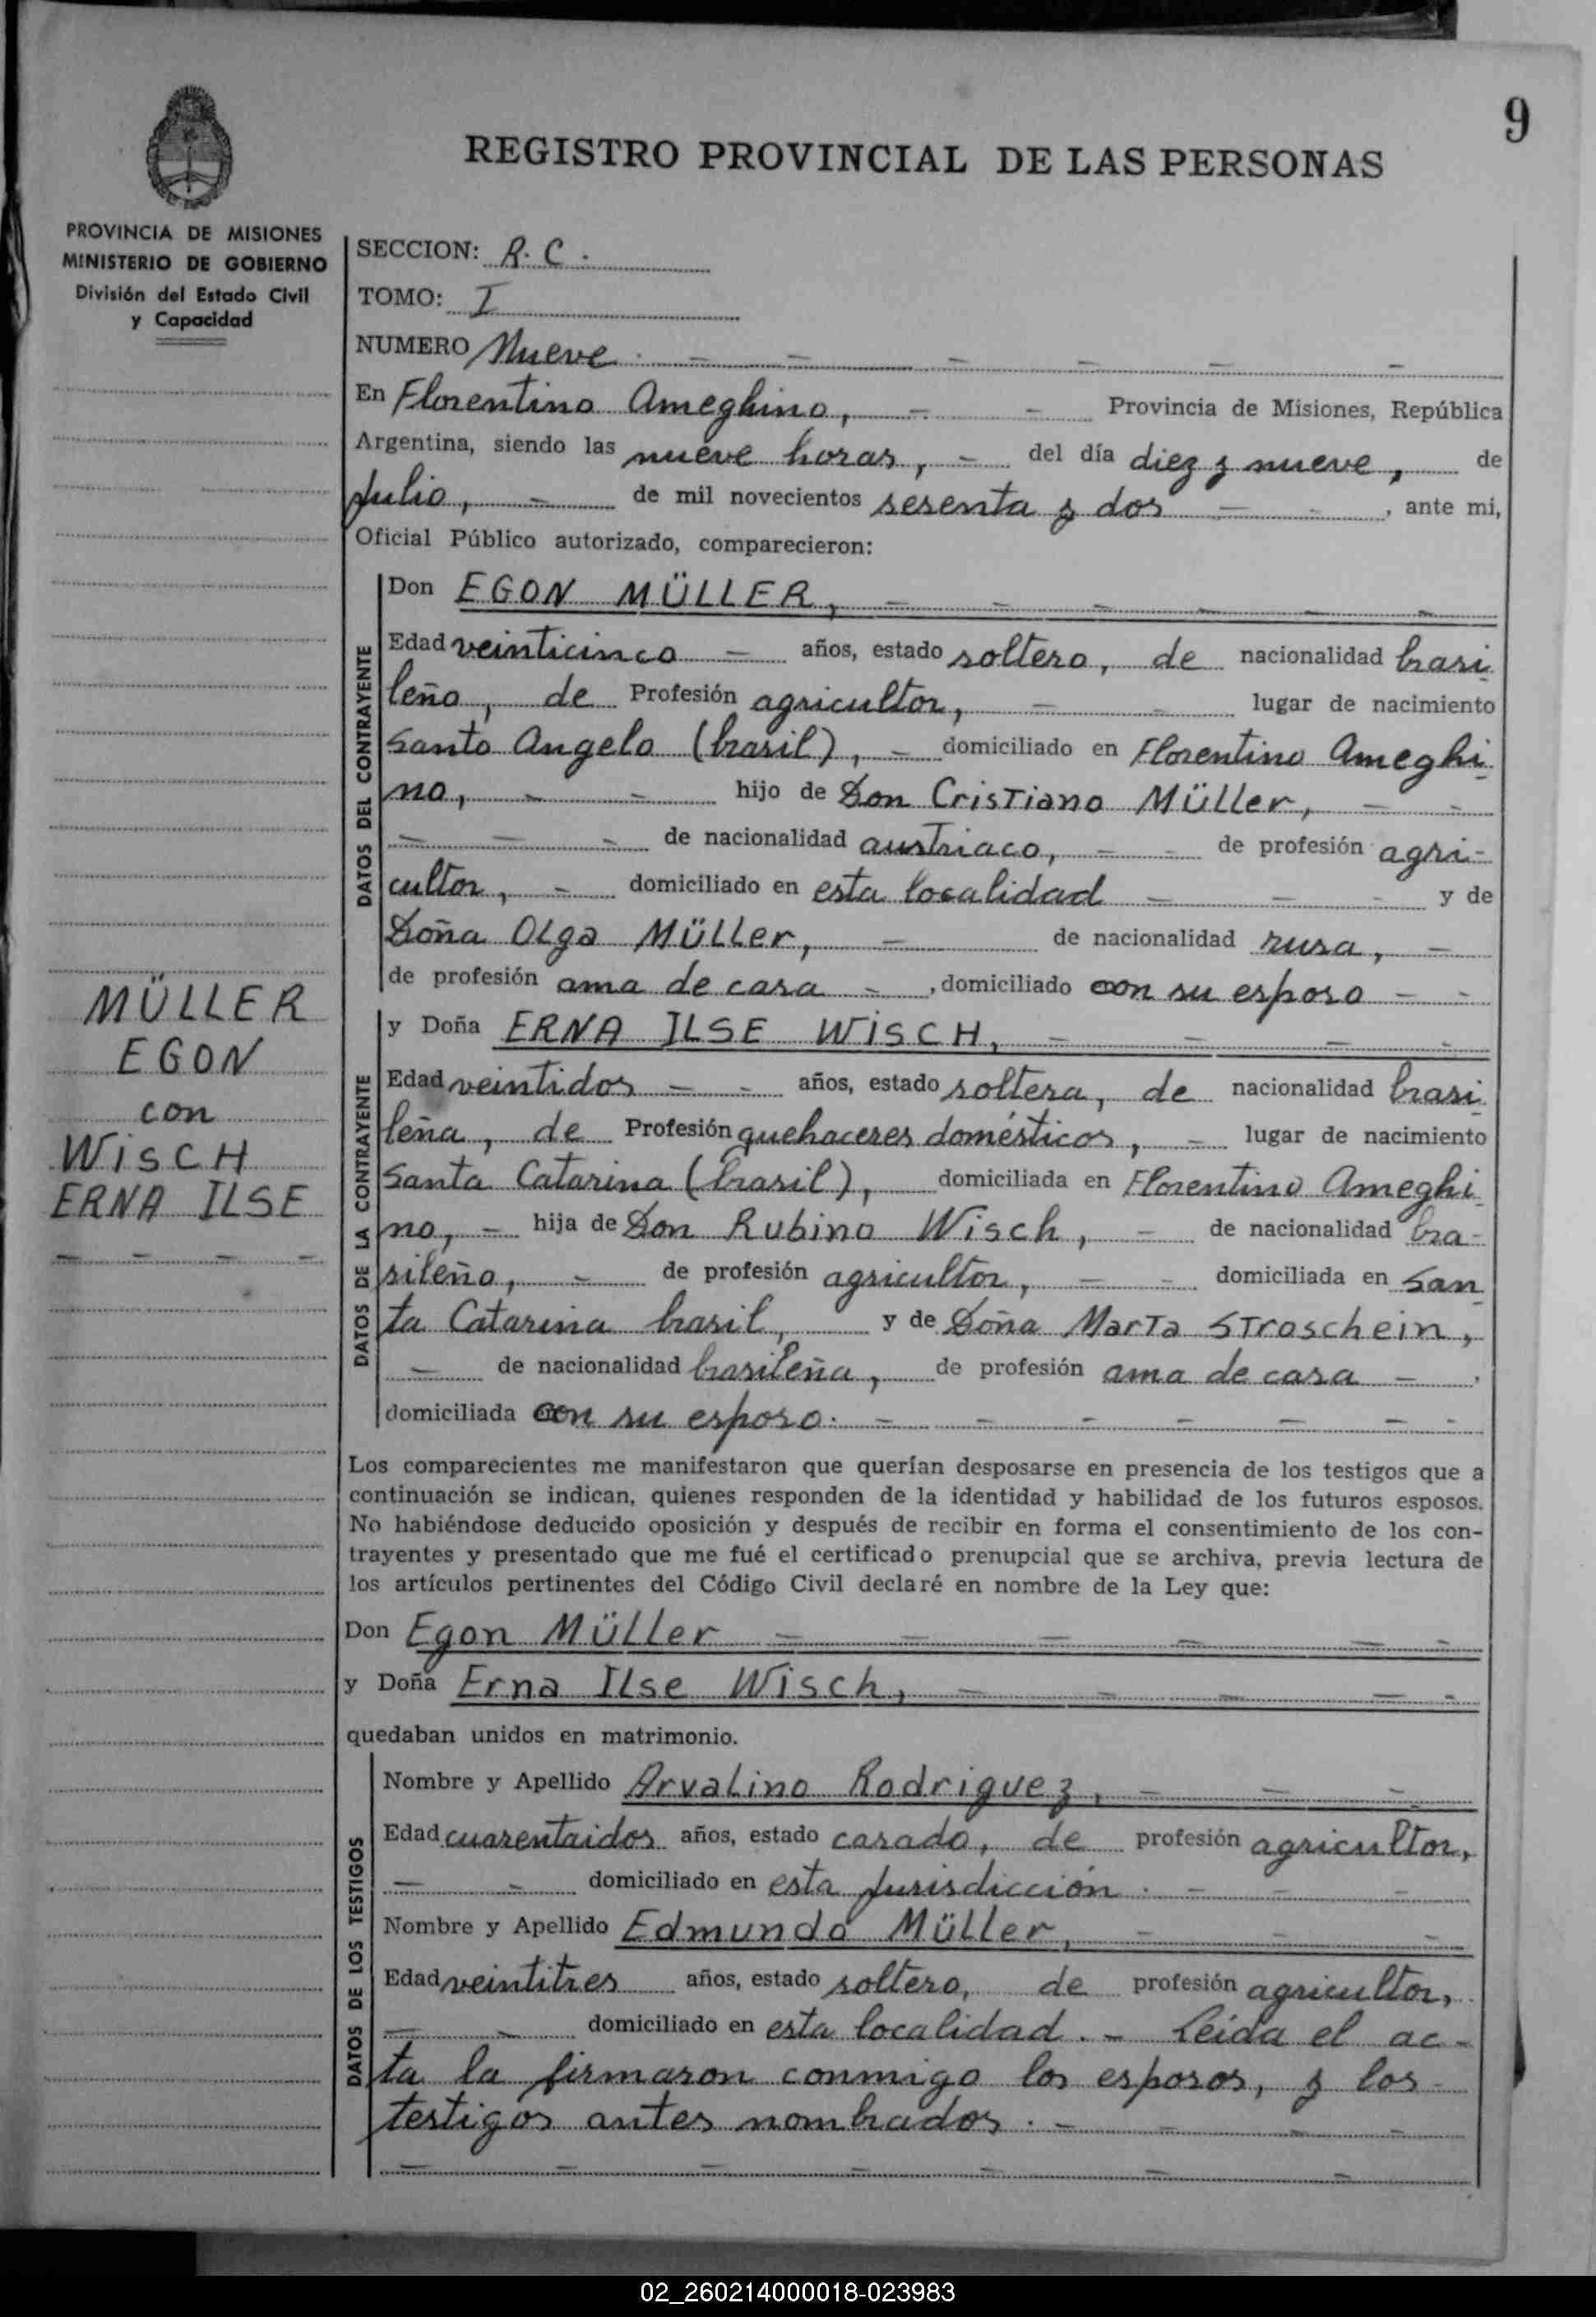 9
REGISTRO PROVINCIAL DE LAS PERSONAS
PROVINCIA DE MISIONES
MINISTERIO DE GOBIERNO
División del Estado Civil
y Capacidad
SECCION: R. C.
TOMO: I
NUMERO Nueve. - - - - - -
En Florentino Ameghino, - - Provincia de Misiones, República
Argentina, siendo las nueve horas, - del día diez y nueve, de
Julio, - de mil novecientos sesenta y dos - - , ante mi,
Oficial Público autorizado, comparecieron:
DATOS DEL CONTRAYENTE
Don EGON MÜLLER, - - - - - -
Edad veinticinco - años, estado soltero, de nacionalidad brasi
leño, de Profesión agricultor, - - lugar de nacimiento
Santo Angelo (brasil), - domiciliado en Florentino Ameghi
no, - - hijo de Don Cristiano Müller, - -
- - - de nacionalidad austriaco, - - de profesión agri-
cultor, - domiciliado en esta localidad - - - y de
Doña Olga Müller, - de nacionalidad rusa, -
de profesión ama de casa - , domiciliado con su esposo - -
MÜLLER
EGON
con
WiSCH
ERNA ILSE
- - - -
DATOS DE LA CONTRAYENTE
y Doña ERNA ILSE WiSCH, - - - -
Edad veintidos - - años, estado soltera, de nacionalidad brasi
leña, de Profesión quehaceres domésticos, - lugar de nacimiento
Santa Catarina (brasil), domiciliada en Florentino Ameghi
no, - hija de Don Rubino Wisch, - de nacionalidad bra-
sileño, - de profesión agricultor, - - domiciliada en San
ta Catarina brasil, y de Doña Marta Stroschein,
- de nacionalidad brasileña, de profesión ama de casa - ,
domiciliada con su esposo. - - - - - - -
Los comparecientes me manifestaron que querían desposarse en presencia de los testigos que a
continuación se indican, quienes responden de la identidad y habilidad de los futuros esposos.
No habiéndose deducido oposición y después de recibir en forma el consentimiento de los con-
trayentes y presentado que me fué el certificado prenupcial que se archiva, previa lectura de
los artículos pertinentes del Código Civil declaré en nombre de la Ley que:
Don Egon Müller - - - - - -
y Doña Erna Ilse Wisch, - - - - -
quedaban unidos en matrimonio.
DATOS DE LOS TESTIGOS
Nombre y Apellido Arvalino Rodriguez, - - -
Edad cuarentaidos años, estado casado, de profesión agricultor,
- - domiciliado en esta Jurisdicción. - - -
Nombre y Apellido Edmundo Müller, - - -
Edad veintitres años, estado soltero, de profesión agricultor,
- - domiciliado en esta localidad. - Leida el ac-
ta la firmaron conmigo los esposos, y los
testigos antes nombrados. - - - -
- - - - - - -
02_260214000018-023983